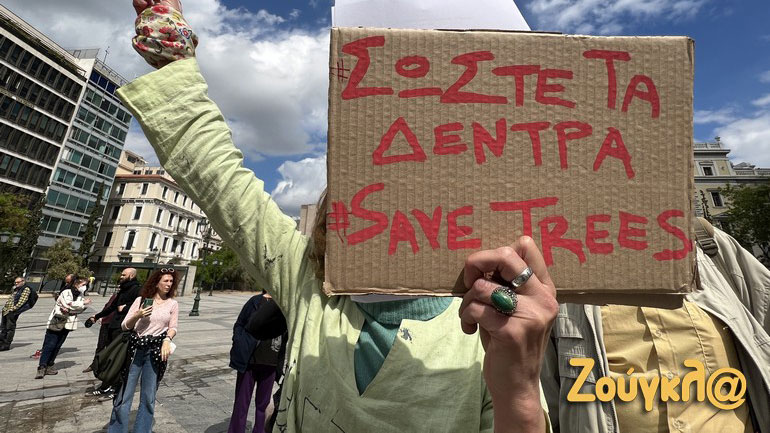 #ΣΩΣΤΕ ΤΑ
ΔΕΝΤΡΑ
#SAVE TREES
Ζούγκλ@